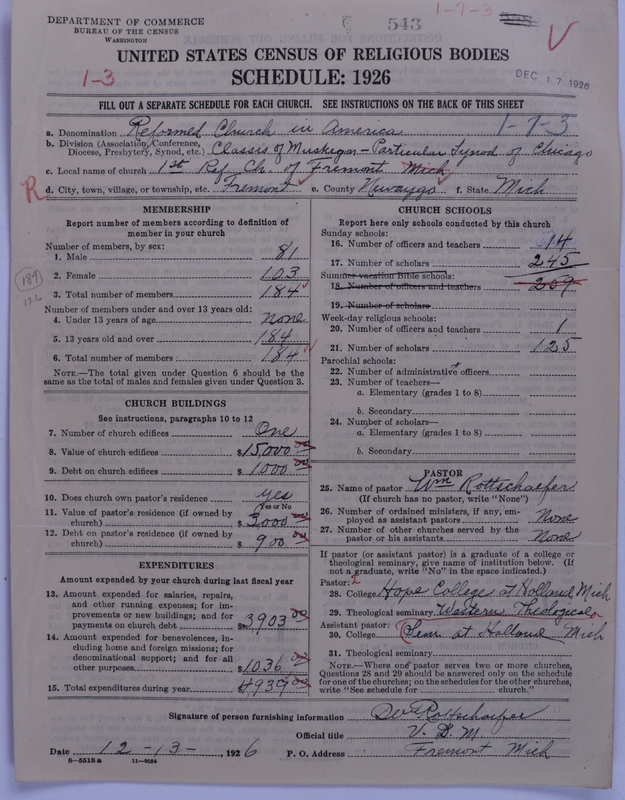 DEPARTMENT OF COMMERCE
BUREAU OF THE CENSUS
WASHINGTON
543
1-7-3
UNITED STATES CENSUS OF RELIGIOUS BODIES
1-3
SCHEDULE: 1926
DEC 17 1926
FILL OUT A SEPARATE SCHEDULE FOR EACH CHURCH. SEE INSTRUCTIONS ON THE BACK OF THIS SHEET
a. Denomination Reformed Church in America 1-7-3
b. Division (Association, Conference, Diocese, Presbytery, Synod, etc.) Classis of Muskegon - Particular Synod of Chicago
c. Local name of church 1st Ref. Ch. of Fremont Mich
R d. City, town, village, or township, etc. Fremont e. County Newaygo f. State Mich
MEMBERSHIP
Report number of members according to definition of
member in your church
Number of members, by sex:
1. Male 81
2. Female 103
184
126
3. Total number of members 184
Number of members under and over 13 years old:
4. Under 13 years of age none
5. 13 years old and over 184
6. Total number of members 184
NOTE.—The total given under Question 6 should be
same as the total of males and females given under Question 3.
CHURCH BUILDINGS
See instructions, paragraphs 10 to 12
7. Number of church edifices One
8. Value of church edifices $15,000 00
9. Debt on church edifices $1000 00
10. Does church own pastor's residence yes
Yes or No
11. Value of pastor's residence (if owned by
church) $3000 00
12. Debt on pastor's residence (if owned by
church) $900 00
EXPENDITURES
Amount expended by your church during last fiscal year
13. Amount expended for salaries, repairs,
and other running expenses; for im-
provements or new buildings; and for
payments on church debt $3903 00
14. Amount expended for benevolences, in-
cluding home and foreign missions; for
denominational support; and for all
other purposes $1036 00
15. Total expenditures during year $4939 00
CHURCH SCHOOLS
Report here only schools conducted by this church
Sunday schools:
16. Number of officers and teachers 14
17. Number of scholars 245
Summer vacation Bible schools:
18. Number of officers and teachers 259
19. Number of scholars
Week-day religious schools:
20. Number of officers and teachers 1
21. Number of scholars 125
Parochial schools:
22. Number of administrative officers
23. Number of teachers—
a. Elementary (grades 1 to 8)
b. Secondary
24. Number of scholars—
a. Elementary (grades 1 to 8)
b. Secondary
PASTOR
25. Name of pastor Wm Rottschaefer
(If church has no pastor, write "None")
26. Number of ordained ministers, if any, em-
ployed as assistant pastors None
27. Number of other churches served by the
pastor or his assistants None
If pastor (or assistant pastor) is a graduate of a college or
theological seminary, give name of institution below. (If
not a graduate, write "No" in the space indicated.)
Pastor: 2
28. College Hope College at Holland Mich
29. Theological seminary Western Theological
Assistant pastor:
30. College Sem at Holland Mich
31. Theological seminary
NOTE.—Where one pastor serves two or more churches,
Questions 28 and 29 should be answered only on the schedule
for one of the churches; on the schedules for the other churches,
write "See schedule for church."
Signature of person furnishing information Wm Rottschaefer
Official title V. D. M.
Date 12-13-, 1926 P. O. Address Fremont Mich
8—5518a 11—9054